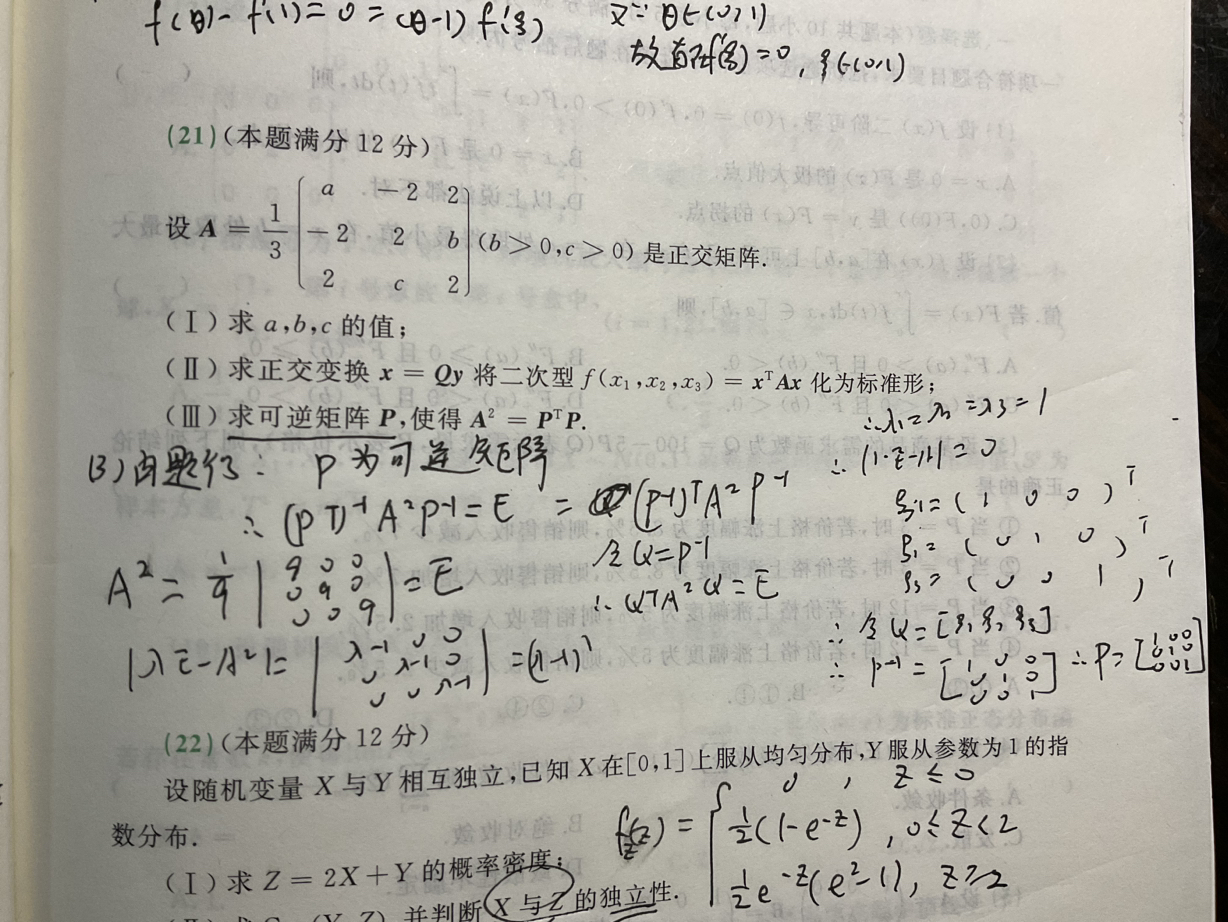 f(θ)-f(1)=0=(θ-1)f'(ξ) 又∵θ∈(0,1)
故有f'(ξ)=0, ξ∈(0,1)
(21)(本题满分 12 分)
设 A = 1/3 [a −2 2; −2 2 b; 2 c 2] (b > 0, c > 0) 是正交矩阵.
(Ⅰ) 求 a,b,c 的值;
(Ⅱ) 求正交变换 x = Qy 将二次型 f(x₁,x₂,x₃) = xᵀAx 化为标准形;
(Ⅲ) 求可逆矩阵 P,使得 A² = PᵀP.
(3)由题得: P为可逆矩阵
∴ (PT)⁻¹A²P⁻¹=E = (P⁻¹)ᵀA²P⁻¹
令Q=P⁻¹
∴ QᵀA²Q=E
A² = 1/9 |9 0 0; 0 9 0; 0 0 9| = E
|λE-A²|= |λ-1 0 0; 0 λ-1 0; 0 0 λ-1| =(λ-1)³
∴λ₁=λ₂=λ₃=1
∴ |1·E-A|=0
ξ₁=(1 0 0)ᵀ
ξ₂=(0 1 0)ᵀ
ξ₃=(0 0 1)ᵀ
∴ 令Q=[ξ₁ ξ₂ ξ₃]
∴ P⁻¹=[1 0 0; 0 1 0; 0 0 1] ∴P=[1 0 0; 0 1 0; 0 0 1]
(22)(本题满分 12 分)
设随机变量 X 与 Y 相互独立,已知 X 在[0,1]上服从均匀分布,Y 服从参数为 1 的指
数分布.
(Ⅰ) 求 Z = 2X + Y 的概率密度;
f_Z(z) = { 0, z≤0
1/2(1-e^-z), 0≤z<2
1/2 e^-z(e²-1), z≥2
并判断 X 与 Z 的独立性.